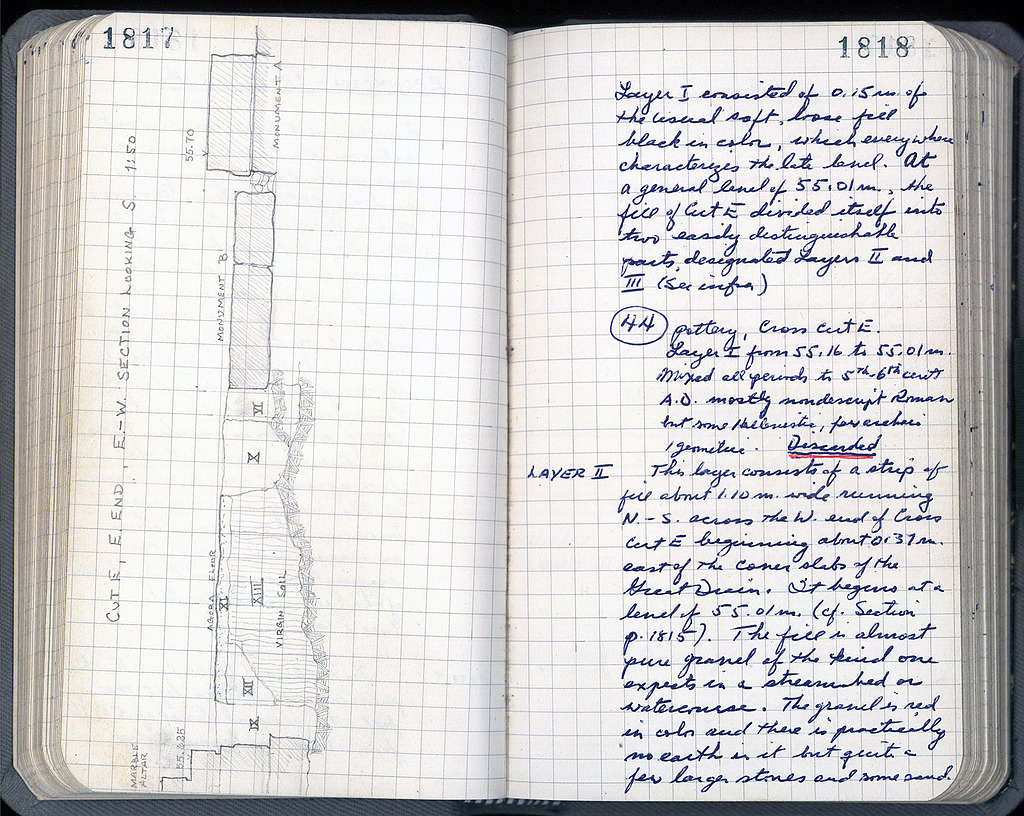 1817
CUT E, E. END, E.-W. SECTION LOOKING S. 1:50
MARBLE
ALTAR
55.625
IX
XII
AGORA FLOOR
XI
XIII
VIRGIN SOIL
X
VI
MONUMENT B'
55.70
MONUMENT A
1818
Layer I consisted of 0.15 m. of
the usual soft, loose fill
black in color, which everywhere
characterizes the late level. At
a general level of 55.01 m., the
fill of Cut E divided itself into
two easily distinguishable
parts, designated Layers II and
III (See infra)
44 pottery, Cross Cut E.
Layer I from 55.16 to 55.01 m.
Mixed all periods to 5th-6th cent
A.D. mostly nondescript Roman
but some Hellenistic, few archaic
1 geometric. Discarded
LAYER II This layer consists of a strip of
fill about 1.10 m. wide running
N.-S. across the W. end of Cross
Cut E beginning about 0.37 m.
east of the cover slabs of the
Great Drain. It begins at a
level of 55.01 m. (cf. Section
p. 1815). The fill is almost
pure gravel of the kind one
expects in a streambed or
watercourse. The gravel is red
in color and there is practically
no earth in it but quite a
few larger stones and some sand.